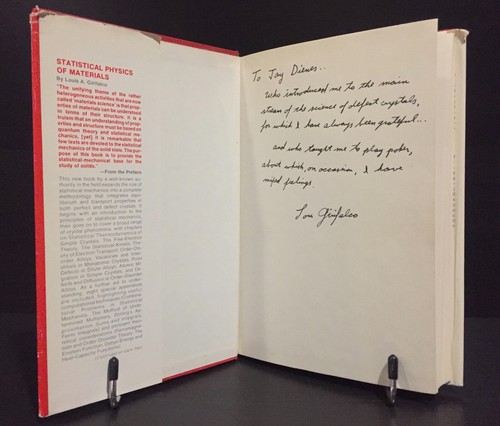 STATISTICAL PHYSICS
OF MATERIALS
By Louis A. Girifalco
"The unifying theme of the rather
heterogeneous activities that are now
called 'materials science' is that prop-
erties of materials can be understood
in terms of their structure. It is a
truism that an understanding of prop-
erties and structure must be based on
quantum theory and statistical me-
chanics. [yet] it is remarkable that
few texts are devoted to the statistical
mechanics of the solid state. The pur-
pose of this book is to provide the
statistical mechanical base for the
study of solids."
—From the Preface
This new book by a well-known au-
thority in the field expands the role of
statistical mechanics into a complete
methodology that integrates equi-
librium and transport properties in
both perfect and defect crystals. It
begins with an introduction to the
principles of statistical mechanics,
then goes on to cover a broad range
of crystal phenomena, with chapters
on Statistical Thermodynamics of
Simple Crystals, The Free-Electron
Theory of Electron Transport, Order-Dis-
order Alloys, Vacancies and Inter-
stitials in Monatomic Crystals, Point
Defects in Dilute Alloys,
To Jay Dienes..
who introduced me to the main
stream of the science of defect crystals,
for which I have always been grateful...
and who taught me to play poker,
about which, on occasion, I have
mixed feelings.
Lou Girifalco